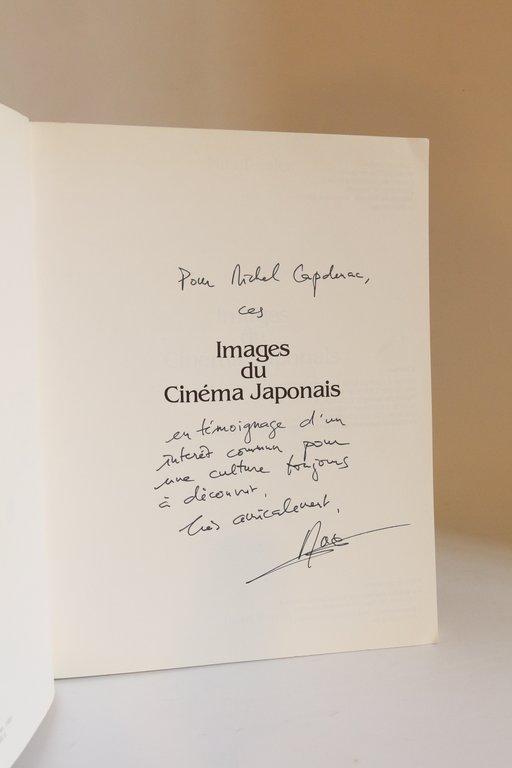 Pour Michel Capdenac,
ces
Images
du
Cinéma Japonais
en témoignage d'un
intérêt commun pour
une culture toujours
à découvrir.
Très amicalement,